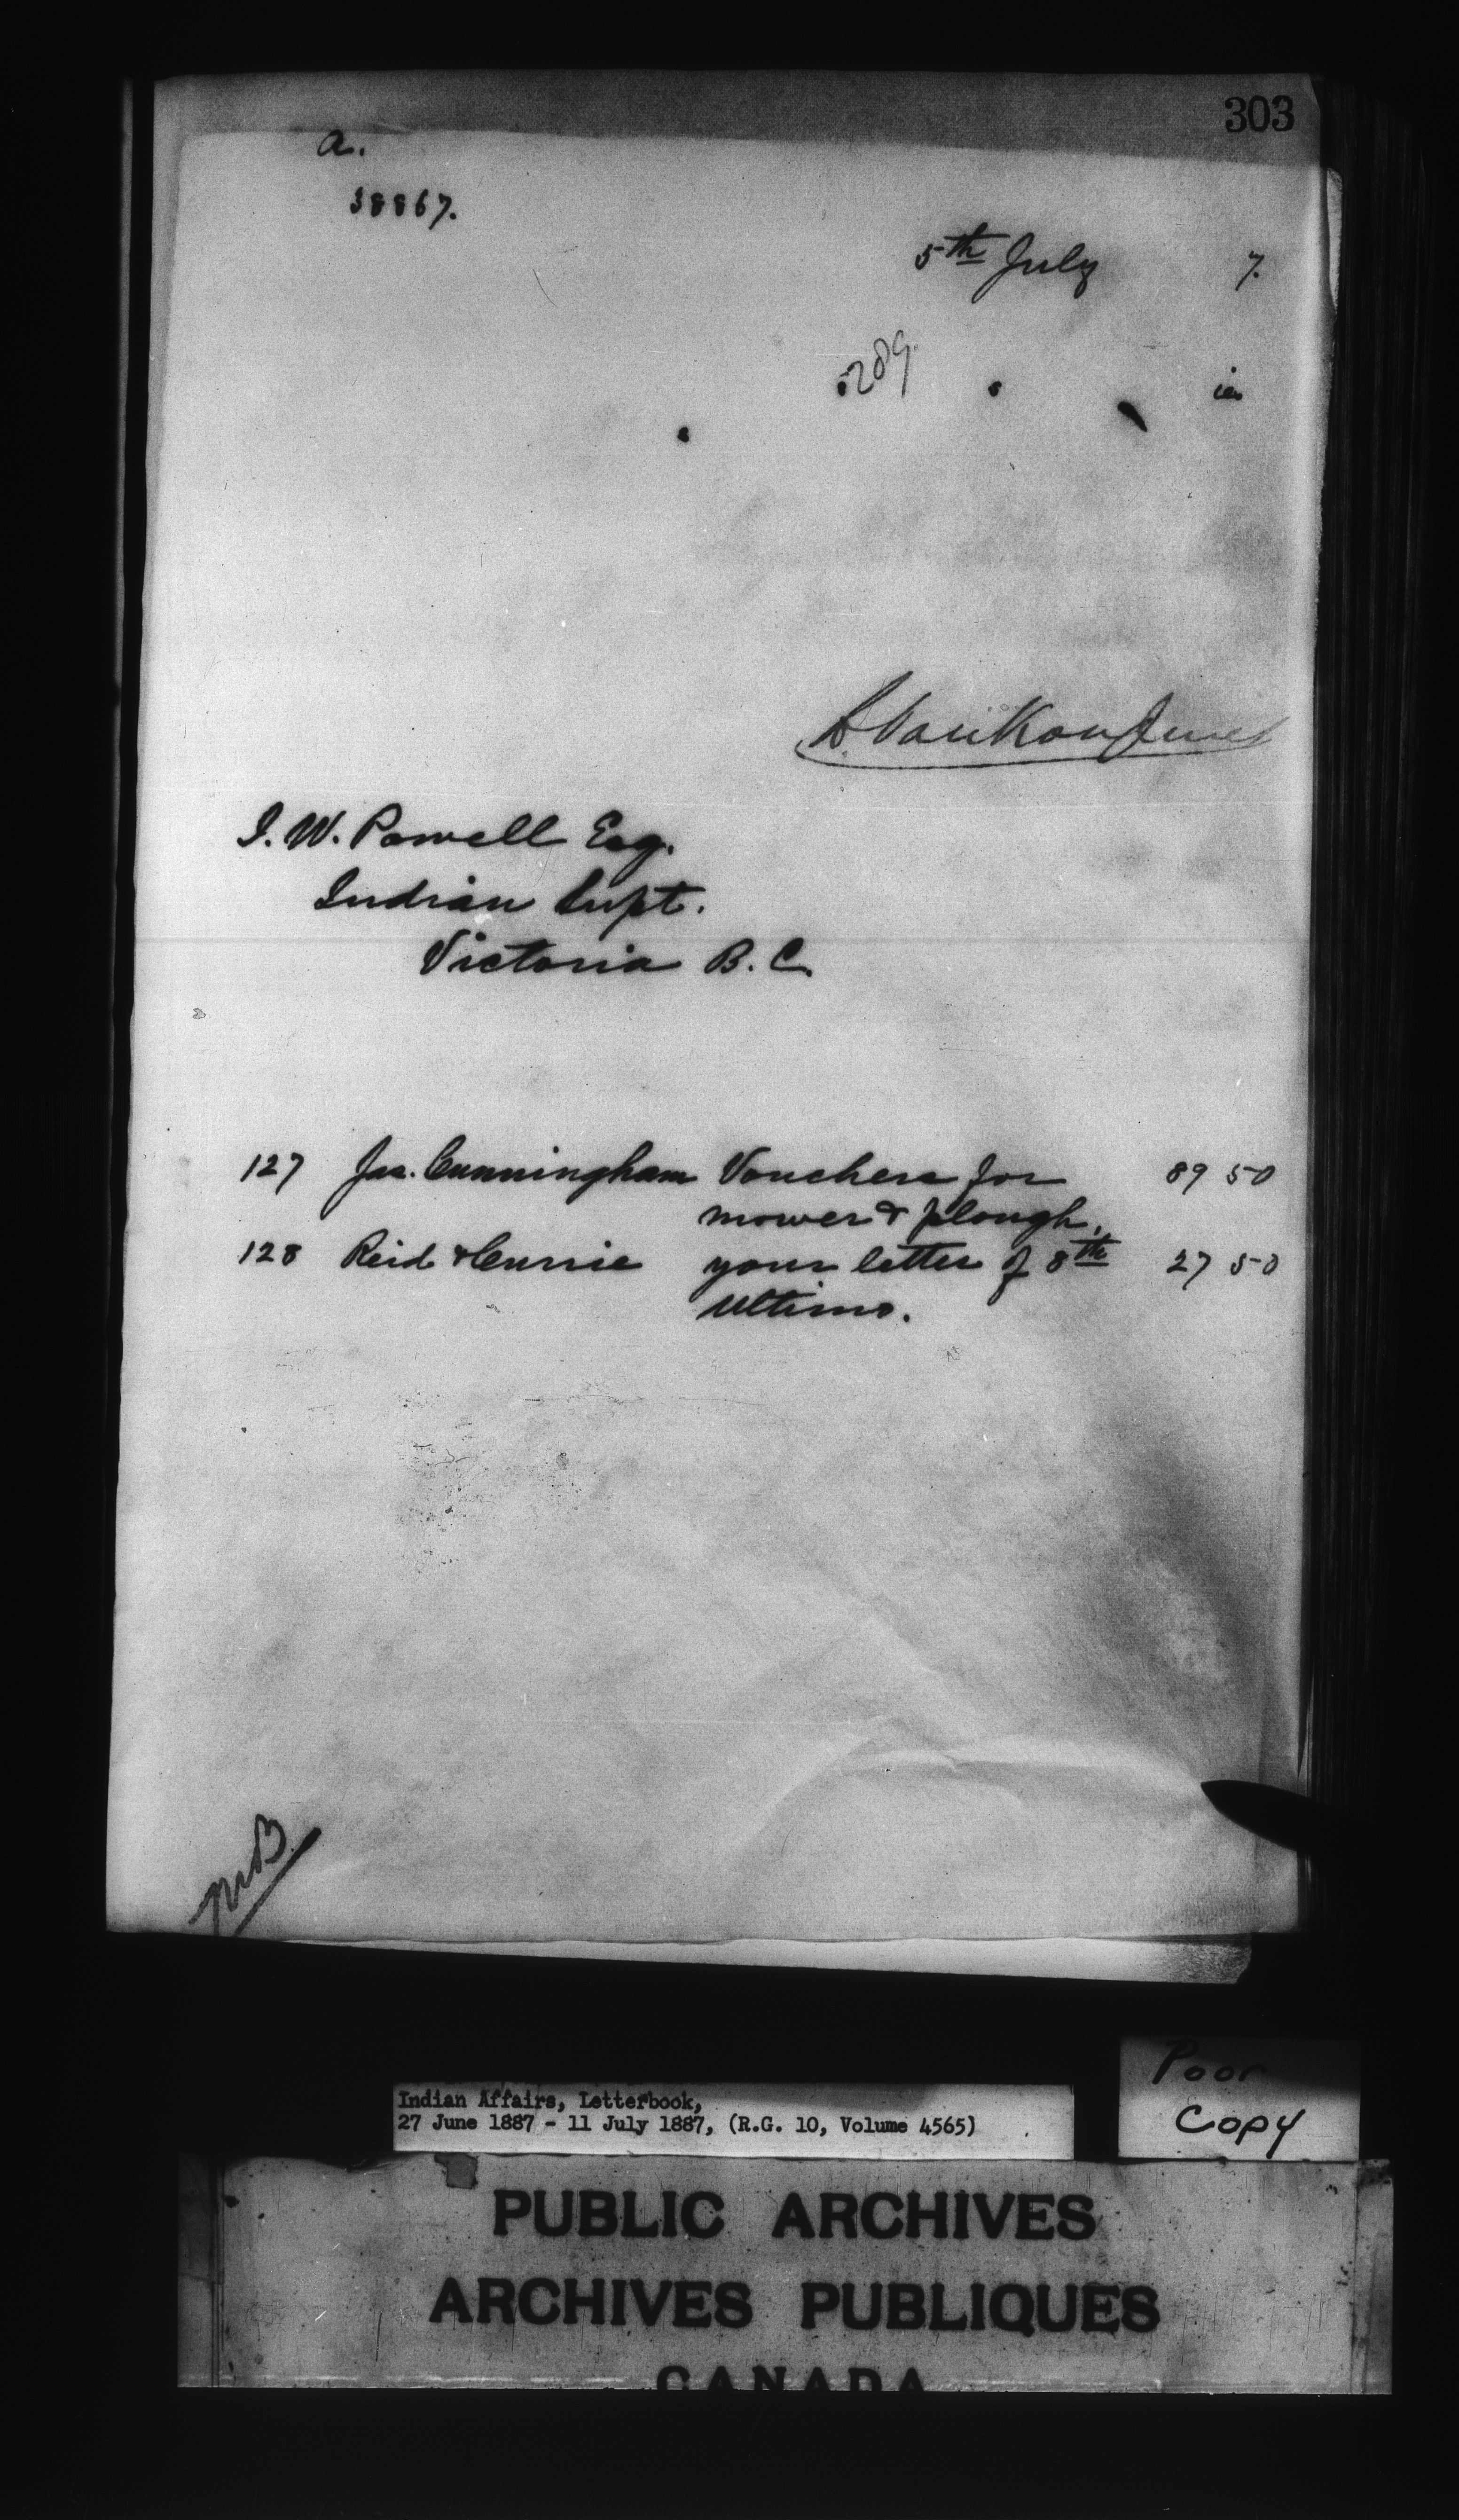 303
a.
38867.
5th July 7.
289.
L. VanKoughnet
I. W. Powell Esq.
Indian Supt.
Victoria B. C.
127 Jas. Cunningham Vouchers for 89 50
mower & plough.
128 Reid & Currie your letter of 8th 27 50
ultimo.
Poor
Copy
Indian Affairs, Letterbook,
27 June 1887 - 11 July 1887, (R.G. 10, Volume 4565)
PUBLIC ARCHIVES
ARCHIVES PUBLIQUES
CANADA